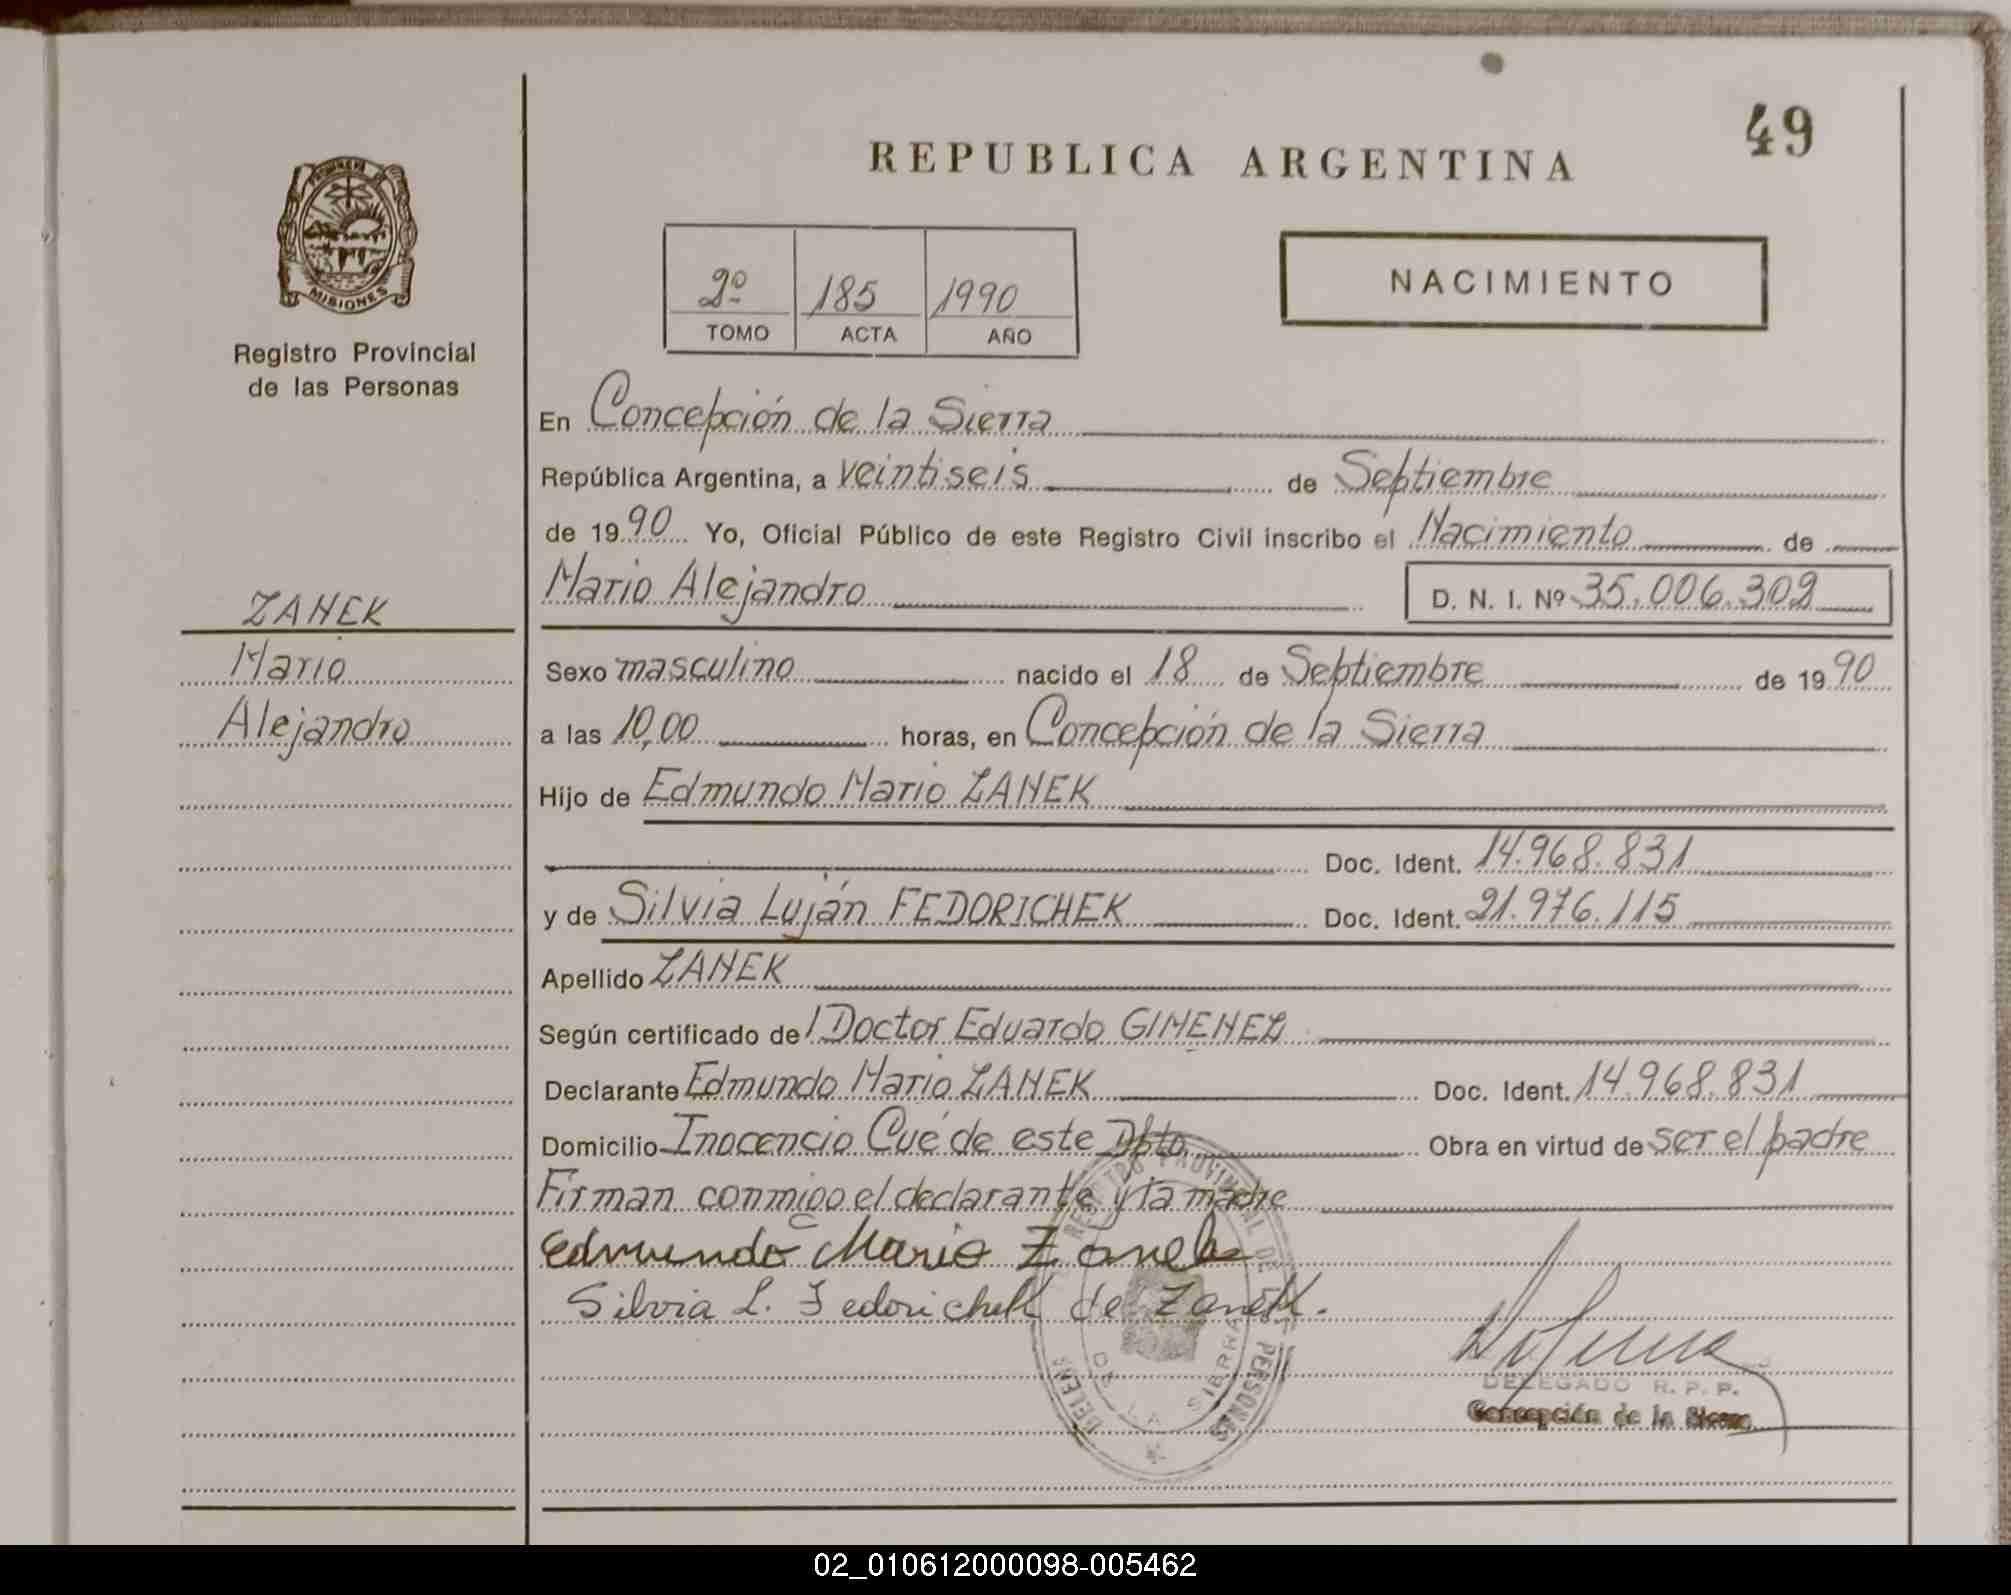 49
REPUBLICA ARGENTINA
PROVINCIA DE
MISIONES
Registro Provincial
de las Personas
2º 185 1990
TOMO ACTA AÑO
NACIMIENTO
En Concepción de la Sierra
República Argentina, a veintiseis de Septiembre
de 1990 Yo, Oficial Público de este Registro Civil inscribo el Nacimiento de
Mario Alejandro D. N. I. Nº 35.006.309
ZANEK
Mario
Alejandro
Sexo masculino nacido el 18 de Septiembre de 1990
a las 10,00 horas, en Concepción de la Sierra
Hijo de Edmundo Mario ZANEK
Doc. Ident. 14.968.831
y de Silvia Luján FEDORICHEK Doc. Ident. 21.976.115
Apellido ZANEK
Según certificado de l Doctor Eduardo GIMENEZ
Declarante Edmundo Mario ZANEK Doc. Ident. 14.968.831
Domicilio Inocencio Cué de este Dpto. Obra en virtud de ser el padre
Firman conmigo el declarante y la madre
Edmundo Mario Zanek
Silvia L. Fedorichek de Zanek.
REGISTRO PROVINCIAL DE LAS PERSONAS
DE LA SIERRA
DELEGADO R. P. P.
Concepción de la Sierra
02_010612000098-005462